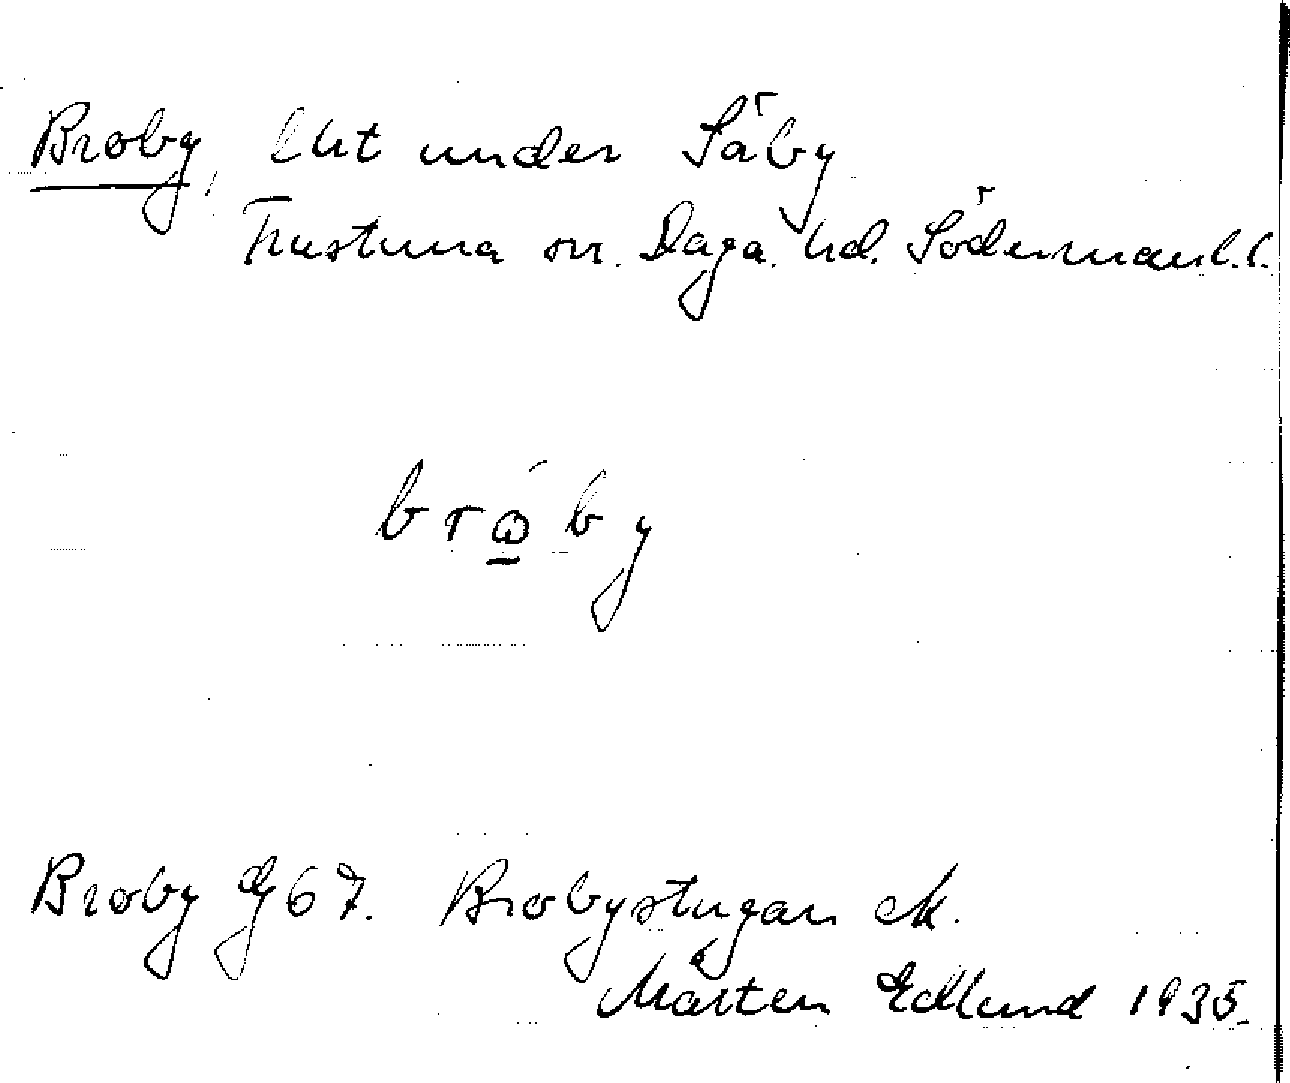 Broby, lht under Säby
Frustuna sn. Daga hd. Södermanl.l.
brώby
Broby G67. Brobystugan ek.
Mårten Edlund 1935.